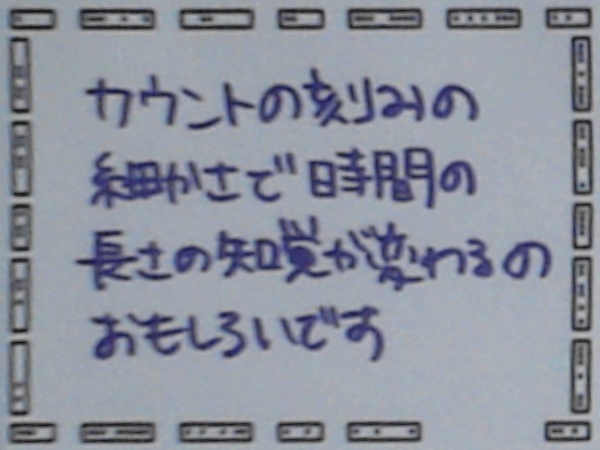 カウントの刻りみの
細かさで時間の
長さの知覚が変わるの
おもしろいです